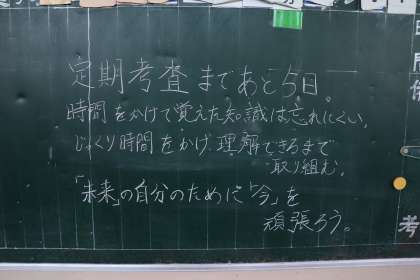 定期考査まであと5日。
時間をかけて覚えた知識は忘れにくい。
じっくり時間をかけ理解できるまで
取り組む。
「未来」の自分のために「今」を
頑張ろう。
考